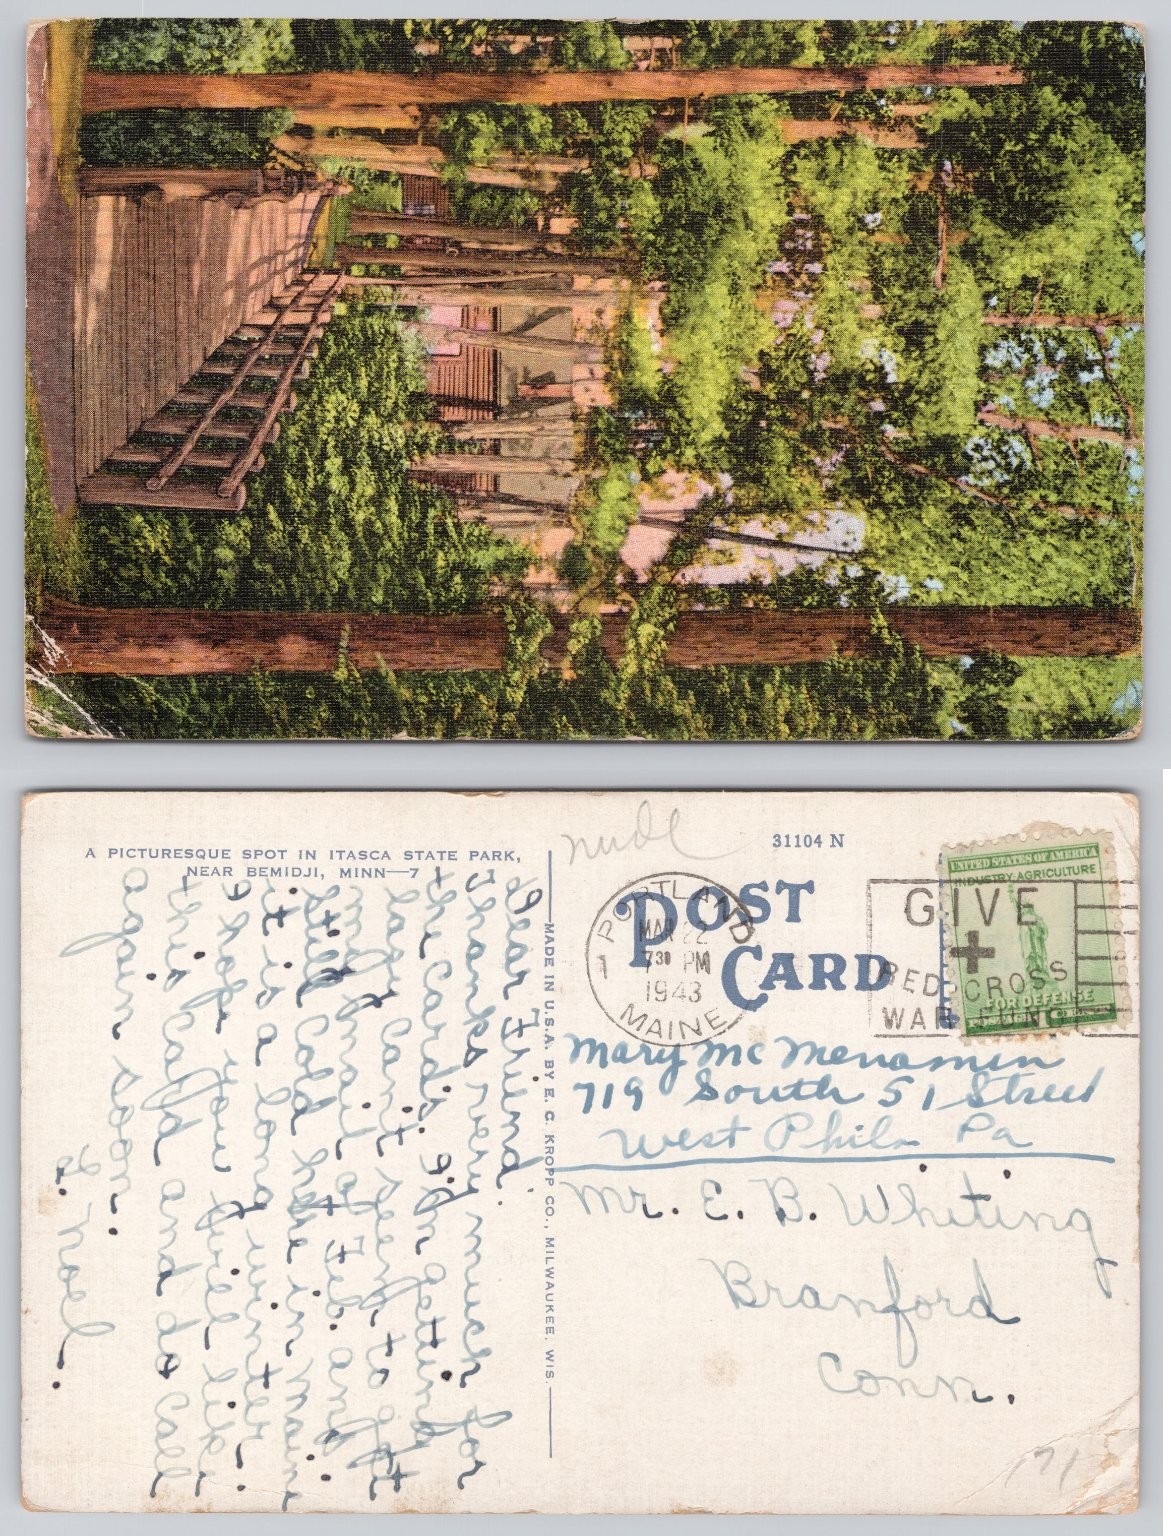 A PICTURESQUE SPOT IN ITASCA STATE PARK,
NEAR BEMIDJI, MINN—7
Dear Friend.
Thanks very much for
the Cards. I'm getting
last Cant seem to get
my mail of Feb. and
still Cold here in Maine
it is a long winter.
I hope you will like
this Card and do Call
again soon.
L. Noel.
MADE IN U.S.A. BY E. C. KROPP CO., MILWAUKEE, WIS.
nude
31104 N
POST
CARD
PORTLAND
MAR 22
7 30 PM
1943
MAINE
1
GIVE
RED CROSS
WAR FUND
UNITED STATES OF AMERICA
INDUSTRY-AGRICULTURE
FOR DEFENSE
Mary Mc Menamin
719 South 51 Street
West Phila Pa
Mr. E. B. Whiting
Branford
Conn.